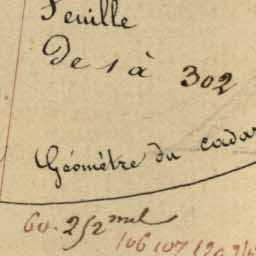 Feuille
De 1 à 302
Géométre du cadas
60. 2/2 mel
106 107 120